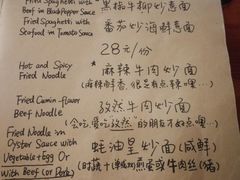 Fried Spaghetti with 黑椒牛柳炒意面
Beef in Black Pepper Sauce
Fried Spaghetti with 番茄炒海鲜意面
Seafood in Tomato Sauce
28元/份
Hot and Spicy *麻辣牛肉炒面
Fried Noodle (麻辣鲜香，很是有点辣嘿…)
Fried Cumin-flavor 孜然牛肉炒面
Beef Noodle ("会爱吃孜然"的朋友不好点嘿…)
Fried Noodle in
Oyster Sauce with 蚝油皇炒面(咸鲜)
Vegetable+Egg Or (时蔬+煎蛋或牛肉丝
With Beef (or Pork)